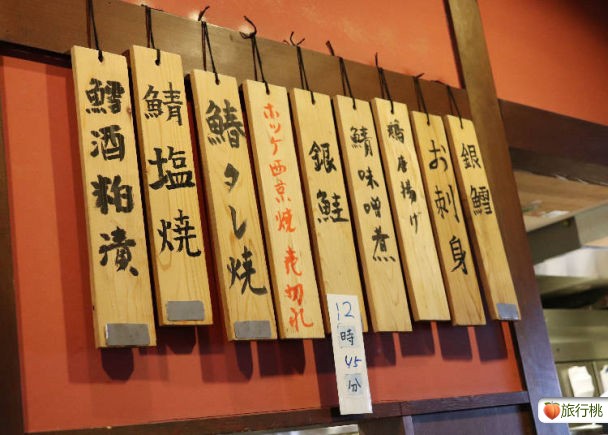 鱈酒粕漬
鯖塩焼
鰆タレ焼
ホッケ西京焼 売切れ
銀鮭
鯖味噌煮
鶏唐揚げ
お刺身
銀鱈
12
時
45
分
旅行桃